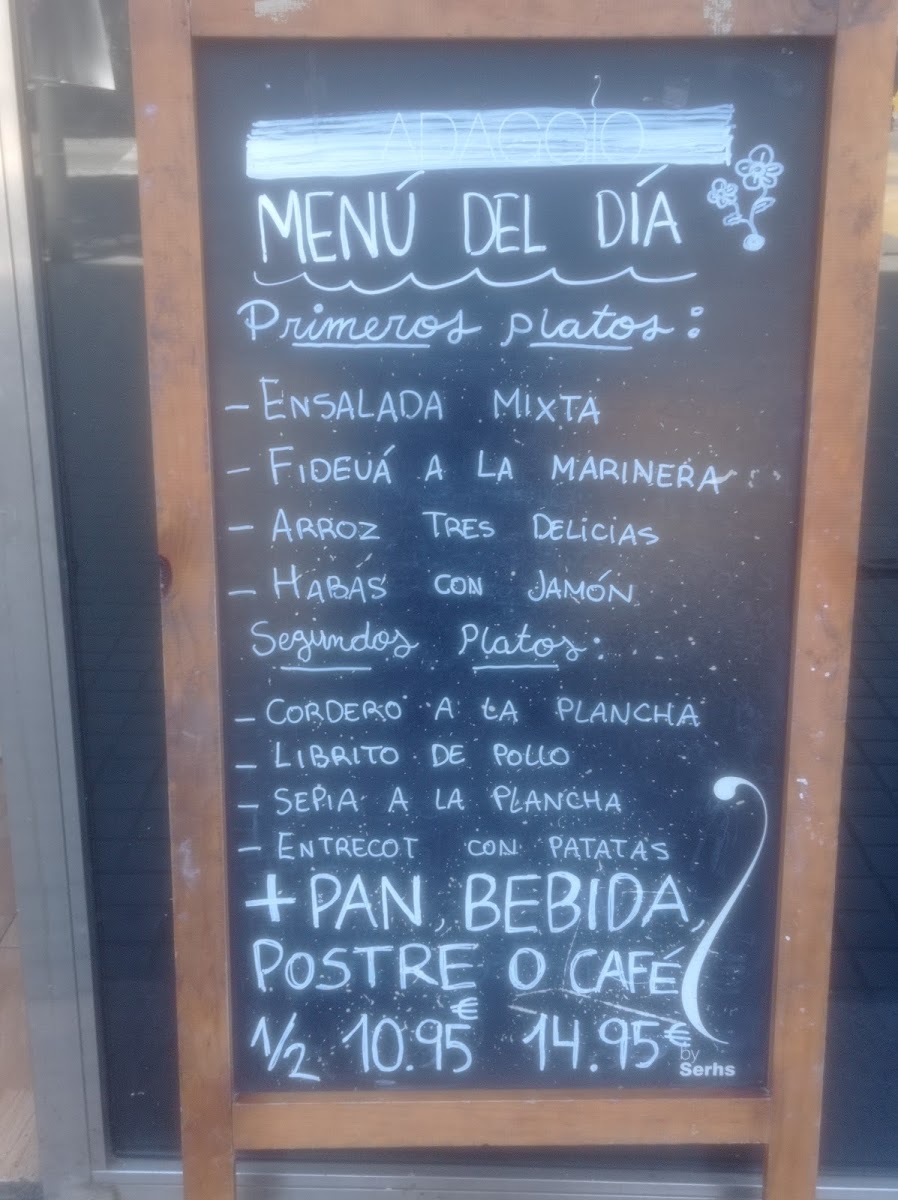 ADAGGIO
MENÚ DEL DÍA
Primeros platos:
- ENSALADA MIXTA
- FIDEUÁ A LA MARINERA
- ARROZ TRES DELICIAS
- HABAS CON JAMÓN
Segundos Platos:
- CORDERO A LA PLANCHA
- LIBRITO DE POLLO
- SEPIA A LA PLANCHA
- ENTRECOT CON PATATAS
+ PAN, BEBIDA,
POSTRE O CAFÉ
1/2 10.95€ 14.95€
by
Serhs